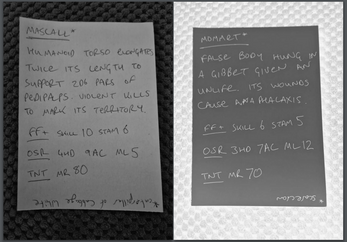 MASCALL*
HUMANOID TORSO ELONGATES
TWICE ITS LENGTH TO
SUPPORT PARS OF
PEDIPALPS. VIOLENT
TO MARK ITS TERRITORY.
FF+ SKILL 10 STAM 6
OSR 4HD 7AC ML 5
TNT MR 80
of
HOMART*
FALSE BODY HUNG IN
A GIBBET GIVEN AN
UNLIFE. ITS WOUNDS
CAUSE ANAPHALAXIS.
FF+ SKILL 6 STAM 5
OSR 3HD 7AC ML 12
TNT MR 70